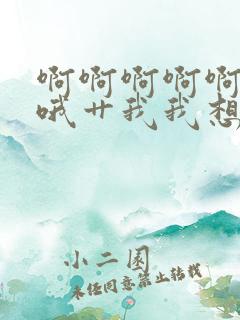 啊啊啊啊啊
哦艹我我想
小二园
未经同意禁止转载